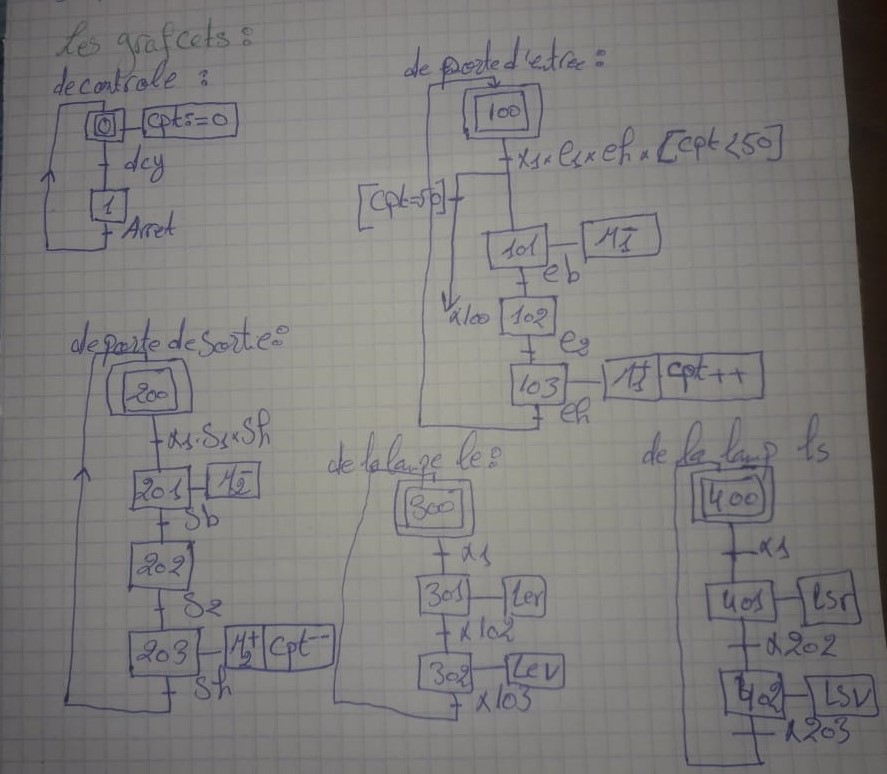 les grafcets :
de controle :
0 Cpt:=0
dcy
1
Arret
de porte d'entree :
100
x1 . e1 x eh x [Cpt<50]
[Cpt=50]
101 M1-
eb
x100 102
e2
103 M1+ Cpt++
eh
de porte de sortie :
200
x1 . S1 x Sh
201 M2-
Sb
202
S2
203 M2+ Cpt--
Sh
de la lampe le :
300
x1
301 ler
x102
302 lev
x103
de la lamp ls
400
x1
401 lsr
x202
402 lsv
x203